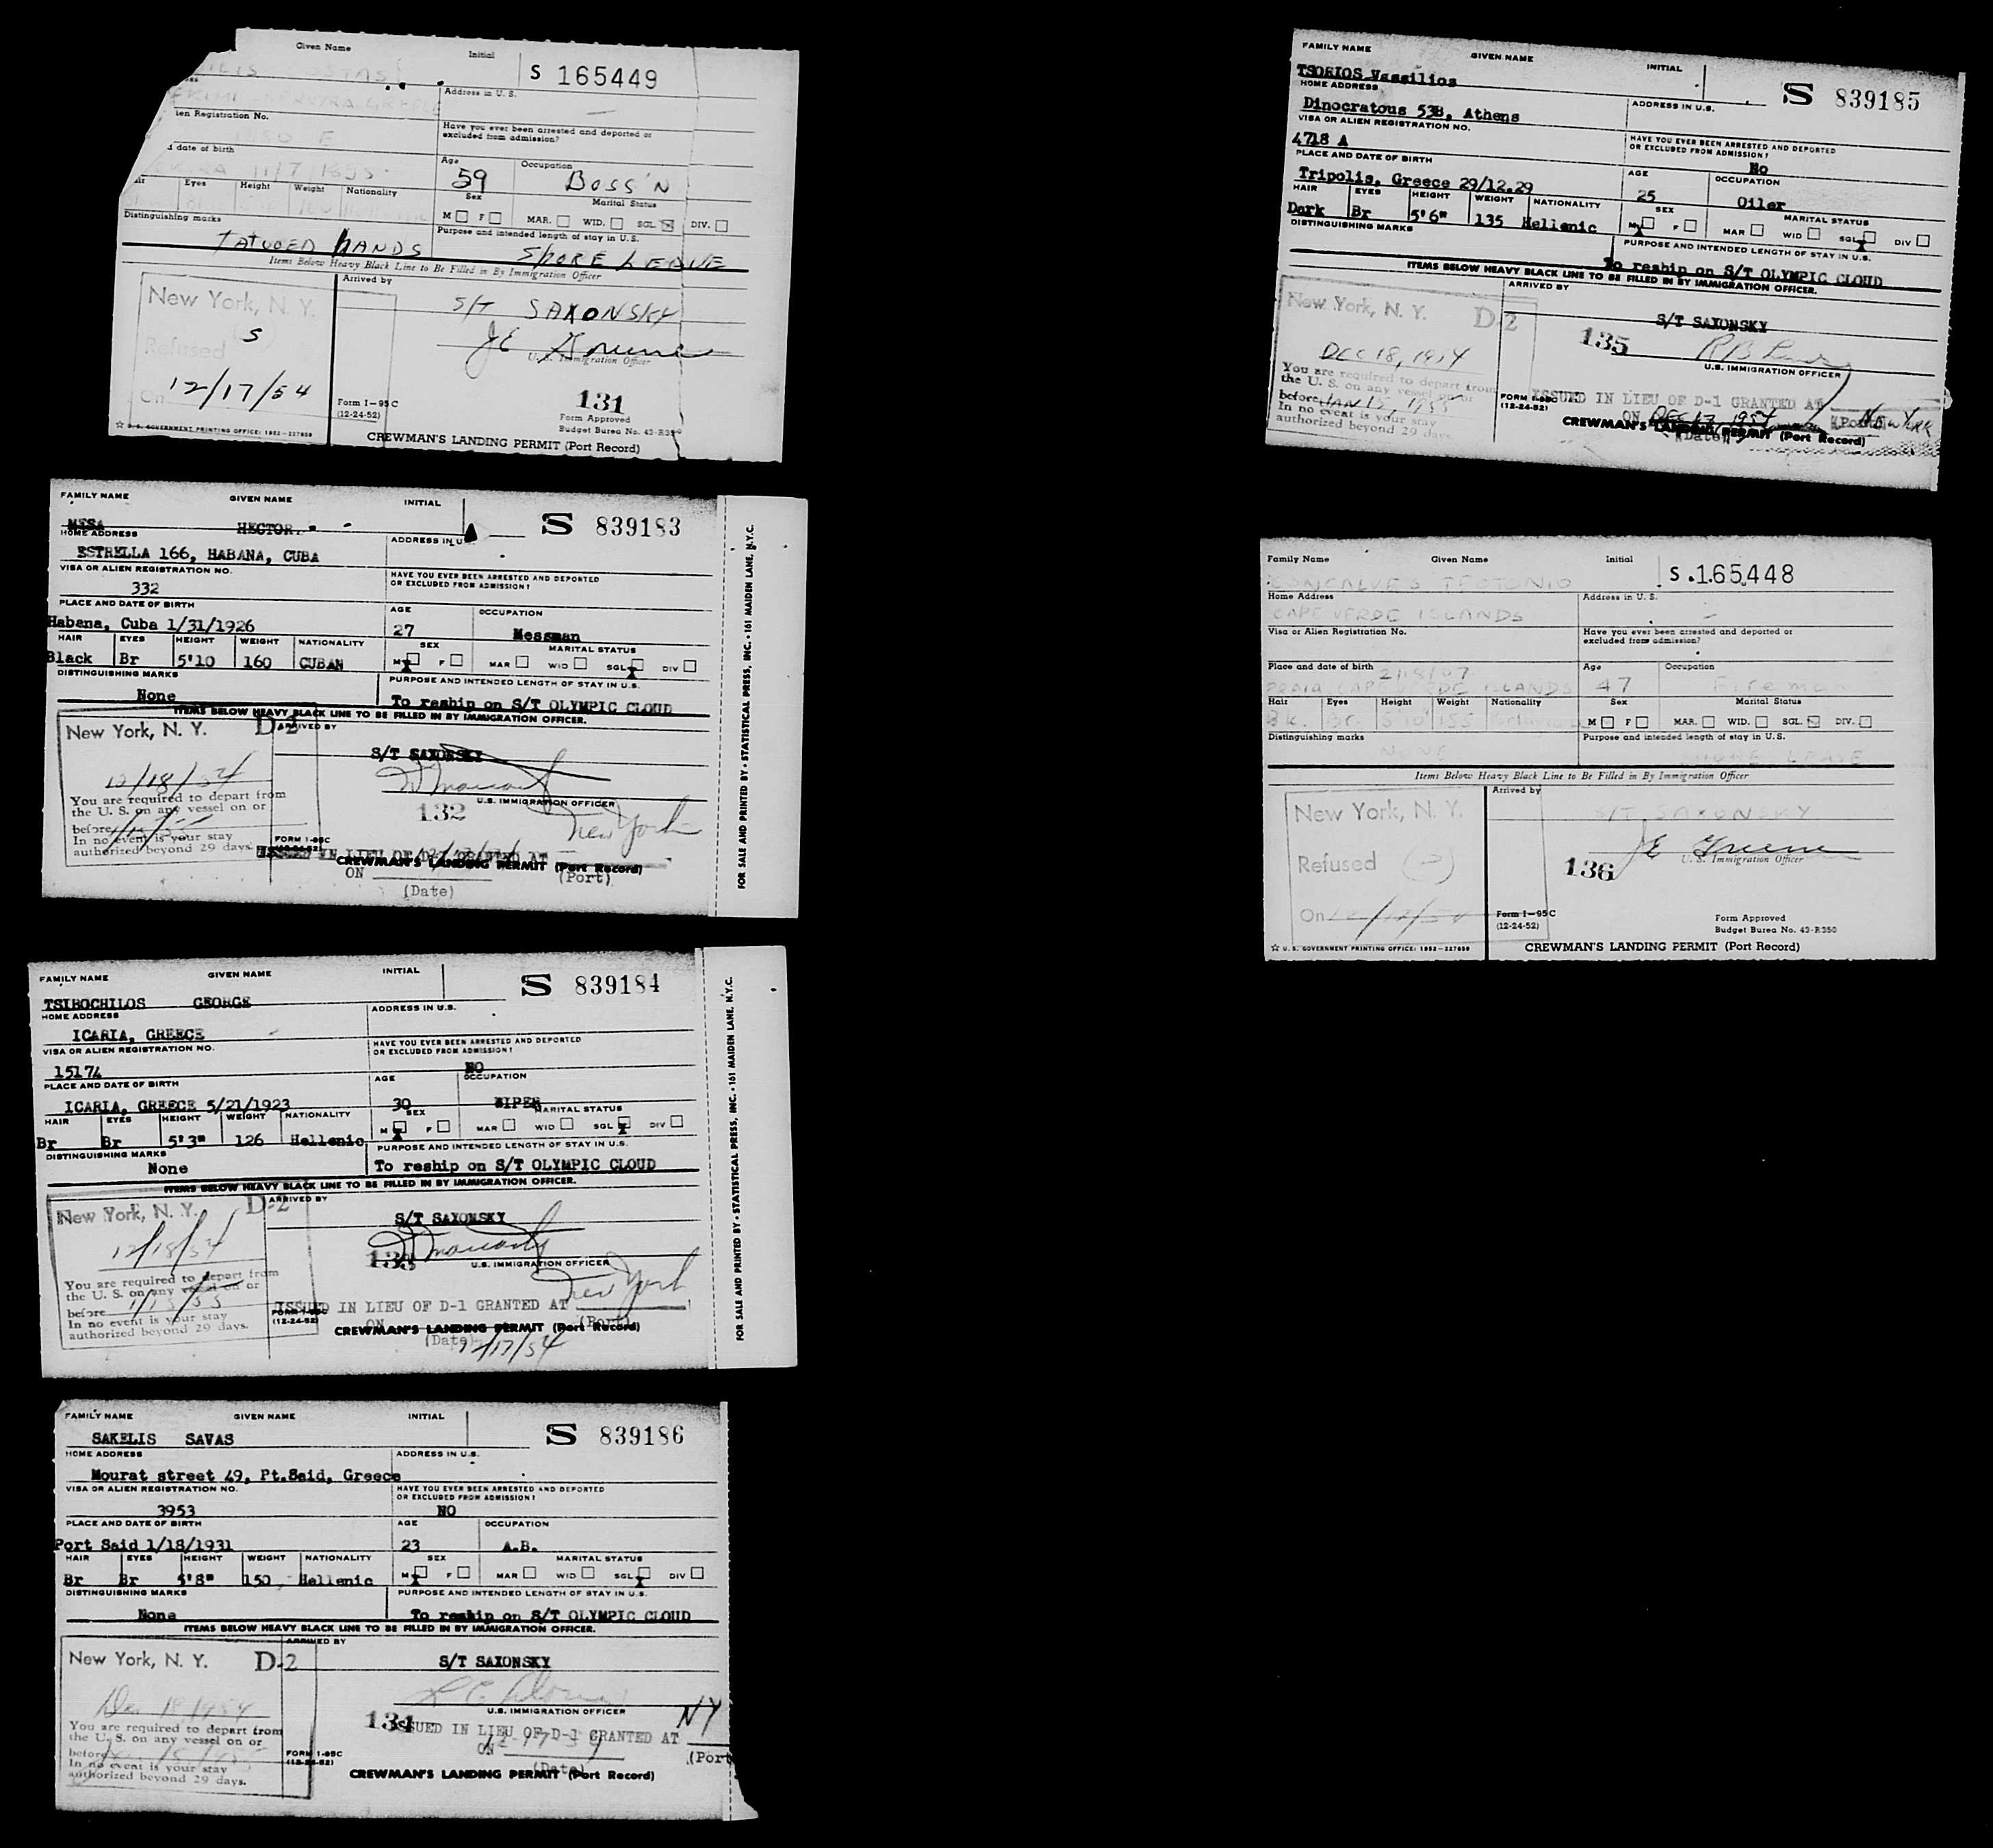 Given Name Initial S 165449
Address in U. S.
ien Registration No.
Have you ever been arrested and deported or
excluded from admission?
d date of birth
11/7/1895
Age Occupation
59 BOSS'N
Eyes Height Weight Nationality
Sex Marital Status
M F MAR. WID. SGL. DIV.
Distinguishing marks
TATUOED HANDS
Purpose and intended length of stay in U.S.
SHORE LEAVE
Items Below Heavy Black Line to Be Filled in By Immigration Officer
New York, N. Y.
S
Refused
On 12/17/54
Arrived by
S/T SAXONSKY
JE Greene
U. S. Immigration Officer
131
Form I-95C
(12-24-52)
Form Approved
Budget Bureau No. 43-R350
☆ U. S. GOVERNMENT PRINTING OFFICE: 1952-227859
CREWMAN'S LANDING PERMIT (Port Record)
FAMILY NAME GIVEN NAME INITIAL
S 839183
MESA HECTOR
HOME ADDRESS ADDRESS IN U.S.
ESTRELLA 166, HABANA, CUBA
VISA OR ALIEN REGISTRATION NO.
332
HAVE YOU EVER BEEN ARRESTED AND DEPORTED
OR EXCLUDED FROM ADMISSION?
PLACE AND DATE OF BIRTH AGE OCCUPATION
Habana, Cuba 1/31/1926 27 Messman
HAIR EYES HEIGHT WEIGHT NATIONALITY SEX MARITAL STATUS
Black Br 5'10 160 CUBAN M F MAR WID SGL DIV
DISTINGUISHING MARKS PURPOSE AND INTENDED LENGTH OF STAY IN U.S.
None To reship on S/T OLYMPIC CLOUD
ITEMS BELOW HEAVY BLACK LINE TO BE FILLED IN BY IMMIGRATION OFFICER.
New York, N. Y. D-2
ARRIVED BY
S/T SAXONSKY
12/18/54
You are required to depart from
the U. S. on any vessel on or
before
In no event is your stay
authorized beyond 29 days.
U.S. IMMIGRATION OFFICER
132
New York
FORM I-95C
(12-24-52)
ISSUED IN LIEU OF D-1 GRANTED AT
CREWMAN'S LANDING PERMIT (Port Record)
ON (Port)
(Date)
FOR SALE AND PRINTED BY • STATISTICAL PRESS, INC. • 161 MAIDEN LANE, N.Y.C.
FAMILY NAME GIVEN NAME INITIAL
S 839184
TSIBOCHILOS GEORGE
HOME ADDRESS ADDRESS IN U.S.
ICARIA, GREECE
VISA OR ALIEN REGISTRATION NO.
15174
HAVE YOU EVER BEEN ARRESTED AND DEPORTED
OR EXCLUDED FROM ADMISSION?
NO
PLACE AND DATE OF BIRTH AGE OCCUPATION
ICARIA, GREECE 5/21/1923 30 WIPER
HAIR EYES HEIGHT WEIGHT NATIONALITY SEX MARITAL STATUS
Br Br 5'3" 126 Hellenic M F MAR WID SGL DIV
DISTINGUISHING MARKS PURPOSE AND INTENDED LENGTH OF STAY IN U.S.
None To reship on S/T OLYMPIC CLOUD
ITEMS BELOW HEAVY BLACK LINE TO BE FILLED IN BY IMMIGRATION OFFICER.
New York, N. Y. D-2
ARRIVED BY
S/T SAXONSKY
12/18/54
133
U.S. IMMIGRATION OFFICER
New York
You are required to depart from
the U. S. on any vessel on or
before 1/15/55
In no event is your stay
authorized beyond 29 days.
FORM I-95C
(12-24-52)
ISSUED IN LIEU OF D-1 GRANTED AT
ON (Port)
CREWMAN'S LANDING PERMIT (Port Record)
(Date) 12/17/54
FOR SALE AND PRINTED BY • STATISTICAL PRESS, INC. • 161 MAIDEN LANE, N.Y.C.
FAMILY NAME GIVEN NAME INITIAL
S 839186
SAKELIS SAVAS
HOME ADDRESS ADDRESS IN U.S.
Mourat street 49, Pt.Said, Greece
VISA OR ALIEN REGISTRATION NO.
3953
HAVE YOU EVER BEEN ARRESTED AND DEPORTED
OR EXCLUDED FROM ADMISSION?
NO
PLACE AND DATE OF BIRTH AGE OCCUPATION
Port Said 1/18/1931 23 A.B.
HAIR EYES HEIGHT WEIGHT NATIONALITY SEX MARITAL STATUS
Br Br 5'8" 150 Hellenic M F MAR WID SGL DIV
DISTINGUISHING MARKS PURPOSE AND INTENDED LENGTH OF STAY IN U.S.
None To reship on S/T OLYMPIC CLOUD
ITEMS BELOW HEAVY BLACK LINE TO BE FILLED IN BY IMMIGRATION OFFICER.
New York, N. Y. D-2
ARRIVED BY
S/T SAXONSKY
Dec 18, 1954
U.S. IMMIGRATION OFFICER
134
ISSUED IN LIEU OF D-1 GRANTED AT NY
ON 12-17-54 (Port
(Date)
You are required to depart from
the U. S. on any vessel on or
before
In no event is your stay
authorized beyond 29 days.
FORM I-95C
(12-24-52)
CREWMAN'S LANDING PERMIT (Port Record)
FAMILY NAME GIVEN NAME INITIAL
S 839185
TSORIOS Vassilios
HOME ADDRESS ADDRESS IN U.S.
Dinocratous 53B, Athens
VISA OR ALIEN REGISTRATION NO.
4718 A
HAVE YOU EVER BEEN ARRESTED AND DEPORTED
OR EXCLUDED FROM ADMISSION?
No
PLACE AND DATE OF BIRTH AGE OCCUPATION
Tripolis, Greece 29/12.29 25 Oiler
HAIR EYES HEIGHT WEIGHT NATIONALITY SEX MARITAL STATUS
Dark Br 5'6" 135 Hellenic M F MAR WID SGL DIV
DISTINGUISHING MARKS PURPOSE AND INTENDED LENGTH OF STAY IN U.S.
To reship on S/T OLYMPIC CLOUD
ITEMS BELOW HEAVY BLACK LINE TO BE FILLED IN BY IMMIGRATION OFFICER.
New York, N. Y. D-2
ARRIVED BY
S/T SAXONSKY
135
DEC 18, 1954
U.S. IMMIGRATION OFFICER
You are required to depart from
the U. S. on any vessel on or
before JAN 15, 1955
In no event is your stay
authorized beyond 29 days
FORM I-95C
(12-24-52)
ISSUED IN LIEU OF D-1 GRANTED AT
ON DEC 17, 1954 (Port) NEW YORK
CREWMAN'S LANDING PERMIT (Port Record)
(Date)
Family Name Given Name Initial
S 165448
GONCALVES TEOTONIO
Home Address Address in U. S.
CAPE VERDE ISLANDS
Visa or Alien Registration No.
Have you ever been arrested and deported or
excluded from admission?
Place and date of birth 2/18/07
PRAIA CAPE VERDE ISLANDS
Age Occupation
47 Fireman
Hair Eyes Height Weight Nationality Sex Marital Status
Bk. Br. 5'10 155 M F MAR. WID. SGL. DIV.
Distinguishing marks Purpose and intended length of stay in U.S.
NONE LEAVE
Items Below Heavy Black Line to Be Filled in By Immigration Officer
New York, N. Y.
Refused
On 12/17/54
Arrived by
S/T SAXONSKY
JE Greene
U. S. Immigration Officer
136
Form I-95C
(12-24-52)
Form Approved
Budget Burea No. 43-R350
☆ U. S. GOVERNMENT PRINTING OFFICE: 1952-227859
CREWMAN'S LANDING PERMIT (Port Record)